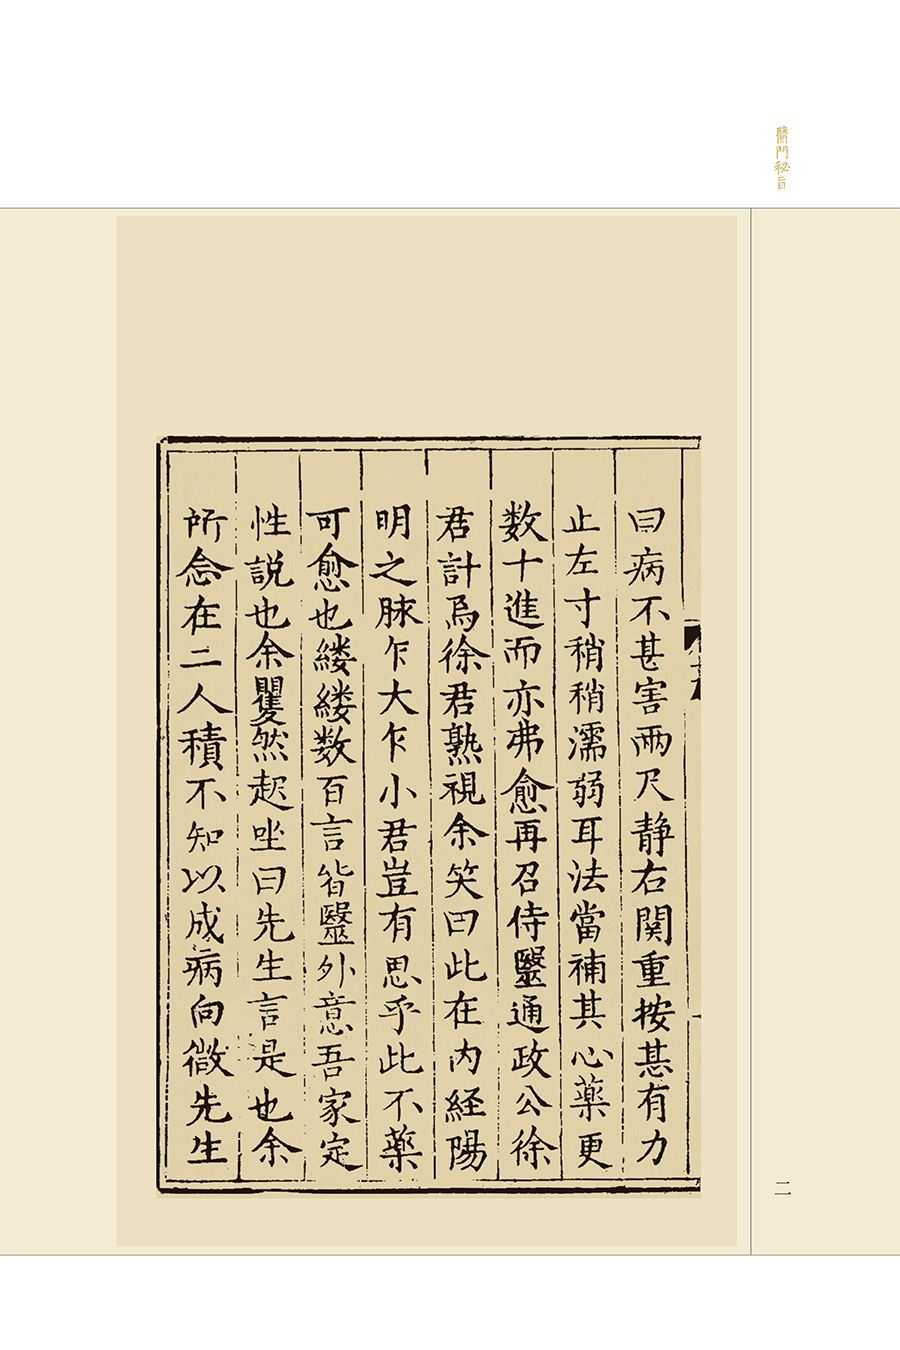 醫門秘旨
曰病不甚害兩尺静右関重按甚有力
止左寸稍稍濡弱耳法當補其心藥更
数十進而亦弗愈再召侍毉通政公徐
君計爲徐君熟視余笑曰此在内経陽
明之脉乍大乍小君豈有思乎此不藥
可愈也縷縷数百言皆毉外意吾家定
性説也余瞿然起坐曰先生言是也余
所念在二人積不知以成病向微先生
二